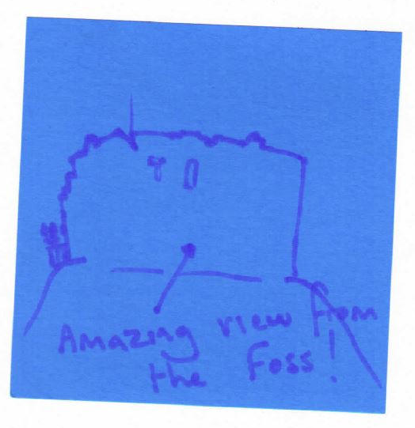 Amazing view from
the Foss!